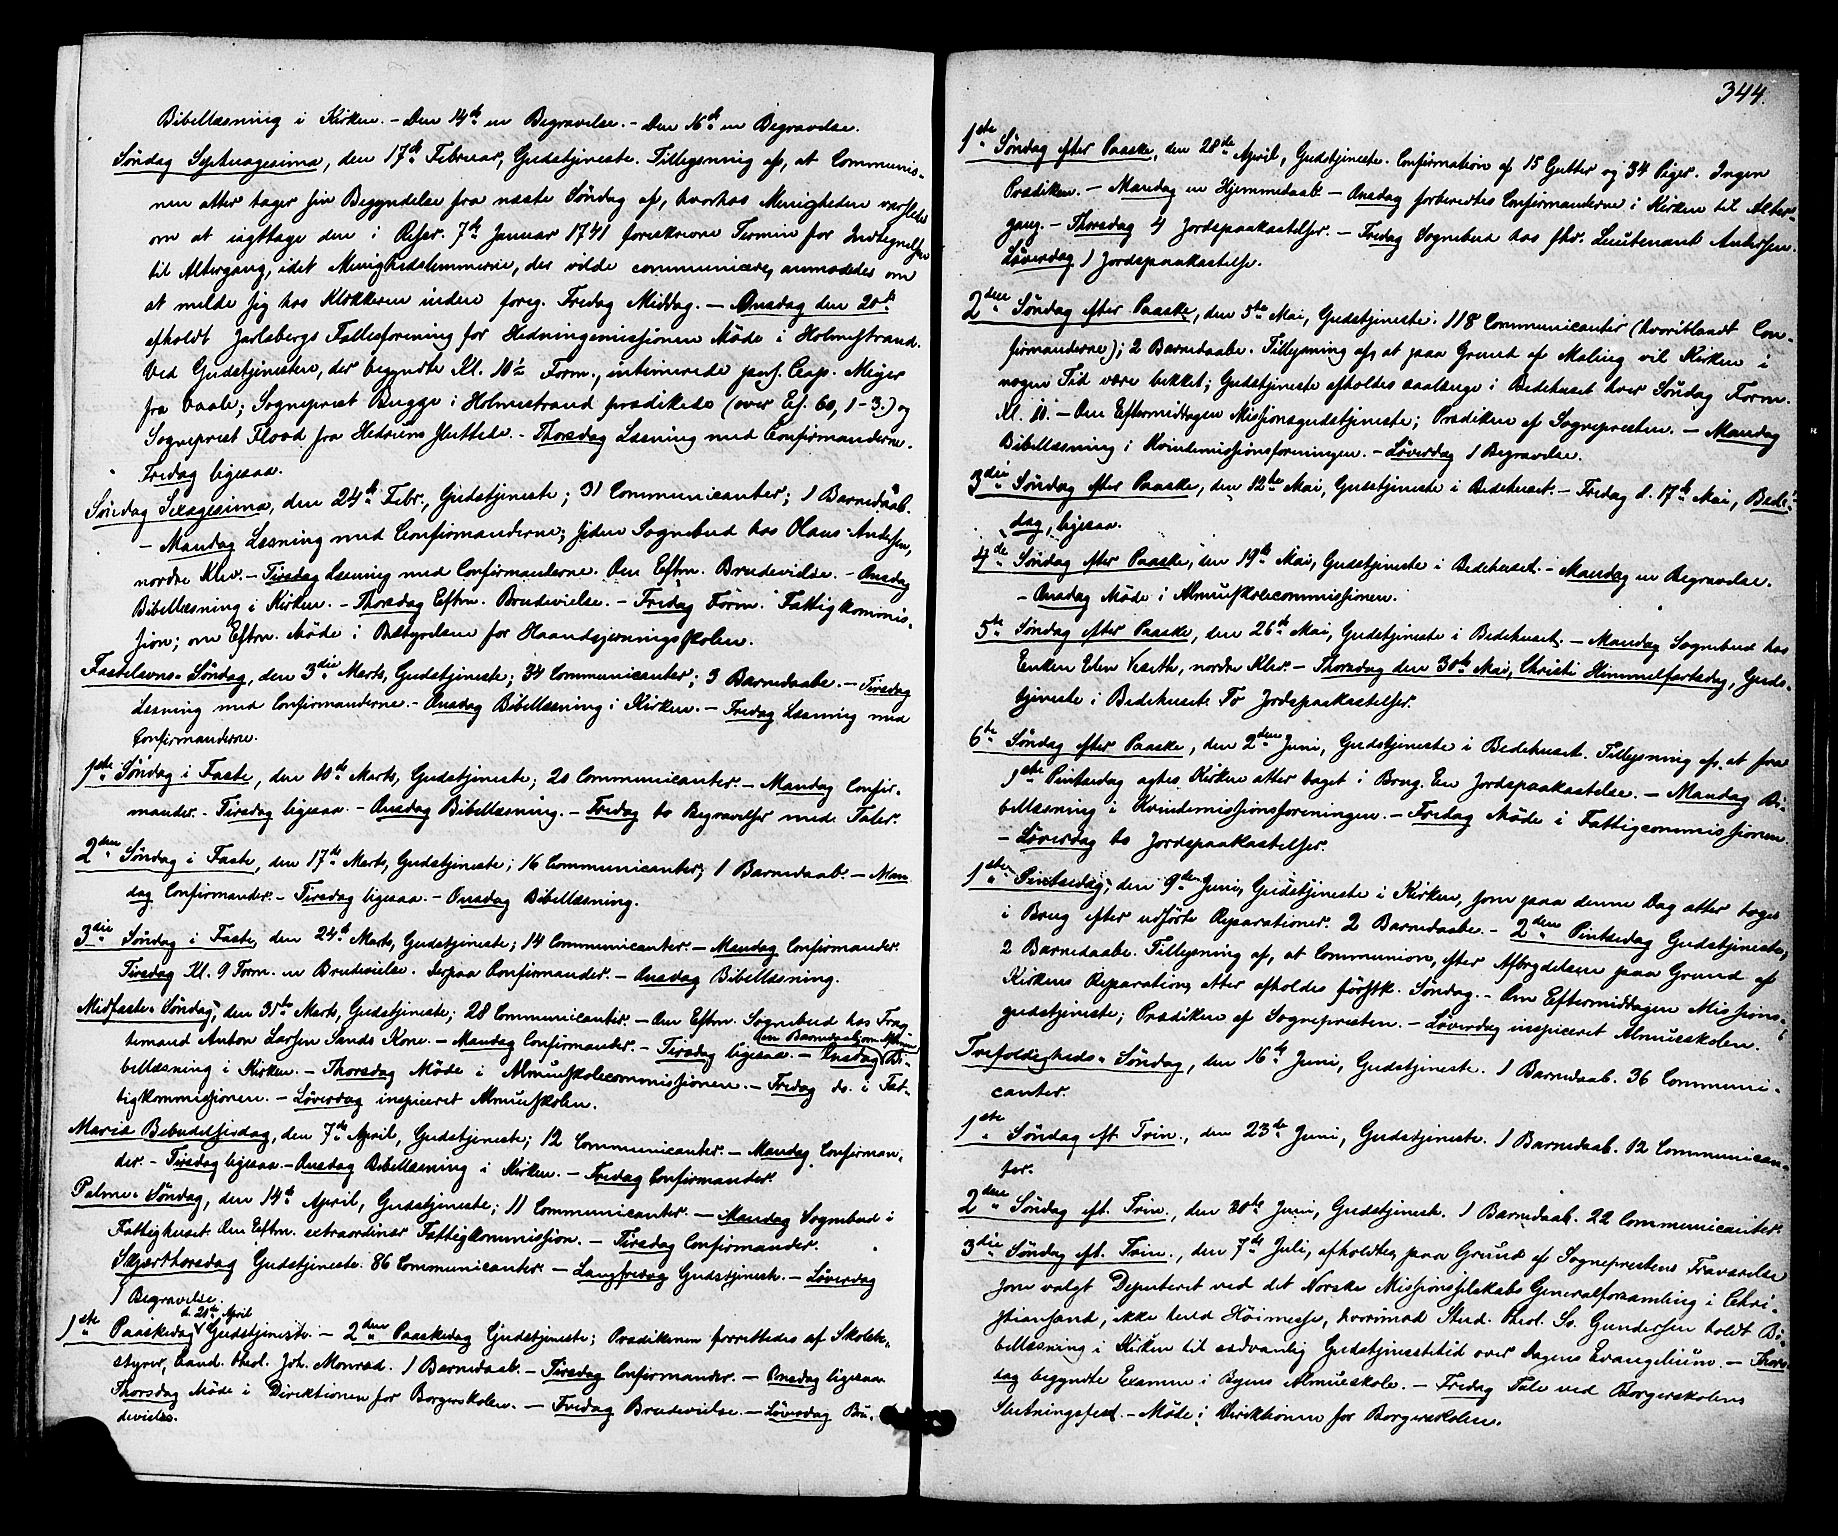 Bibellæsning i Kirken. - Den 14de en Begravelse. - Den 16de en Begravelse.
Søndag Septuagesima, den 17de Februar, Gudstjeneste. Tillysning af, at Communio-
nen atter tager sin Begyndelse fra næste Søndag af, hvorhos Menigheden
om at iagttage den i Rescr. 7de Januar 1741 foreskrevne Termin for Indtegnelsen
til Altergang, idet Menighedslemmerne, der vilde communicere, anmodedes om
at melde sig hos Klokkeren inden foreg. Fredag Middag. - Onsdag den 20de
afholdt Jarlsbergs Fællesforening for Hedningemissionen Møde i Holmestrand.
Ved Gudstjenesten, der begyndte Kl. 10½ Form., intonerede pers. Cap. Meyer
fra Vaale; Sogneprest Bugge i Holmestrand prædikede (over Es. 60, 1-3.) og
Sogneprest Flood fra Hedrum sluttede. - Thorsdag Læsning med Confirmanderne.
Fredag ligesaa.
Søndag Sexagesima, den 24de Febr., Gudstjeneste; 31 Communicanter; 1 Barnedaab.
- Mandag Læsning med Confirmanderne; siden Sognebud hos Olaus Andersen,
nordre Klev. - Tirsdag Læsning med Confirmanderne. Om Eftm. Brudevielse. - Onsdag
Bibellæsning i Kirken. - Thorsdag Eftm. Brudevielse. - Fredag Form. Fattigkommis-
sion; om Eftm. Møde i Bestyrelsen for Haandgjerningsskolen.
Fastelavns-Søndag, den 3die Marts, Gudstjeneste; 34 Communicanter; 3 Barnedaabe. - Tirsdag
Læsning med Confirmanderne. - Onsdag Bibellæsning i Kirken. - Fredag Læsning med
Confirmanderne.
1ste Søndag i Faste, den 10de Marts, Gudstjeneste; 20 Communicanter. - Mandag Confir-
mander. - Tirsdag ligesaa. - Onsdag Bibellæsning. - Fredag to Begravelser med Taler.
2den Søndag i Faste, den 17de Marts, Gudstjeneste; 16 Communicanter; 1 Barnedaab. - Man-
dag Confirmander. - Tirsdag ligesaa. - Onsdag Bibellæsning.
3die Søndag i Faste, den 24de Marts, Gudstjeneste; 14 Communicanter. - Mandag Confirmander.
Tirsdag Kl. 9 Form. en Brudevielse. Derpaa Confirmander. - Onsdag Bibellæsning.
Midfaste-Søndag, den 31te Marts, Gudstjeneste; 28 Communicanter. - Om Eftm. Sognebud hos Frag-
temand Anton Larsen Sands Kone. - Mandag Confirmander. - Tirsdag ligesaa. - Onsdag Bi-
bellæsning i Kirken. - Thorsdag Møde i Almueskolecommissionen. - Fredag do. i Fat-
tigkommissionen. - Løverdag inspiceret Almueskolen.
Mariæ Bebudelsesdag, den 7de April, Gudstjeneste; 12 Communicanter. - Mandag Confirman-
der. - Tirsdag ligesaa. - Onsdag Bibellæsning i Kirken. - Fredag Confirmander.
Palme-Søndag, den 14de April, Gudstjeneste; 11 Communicanter. - Mandag Sognebud i
Fattighuset. Om Eftm. extraordinær Fattigkommission. - Tirsdag Confirmander.
Skjærthorsdag Gudstjeneste. 86 Communicanter. - Langfredag Gudstjeneste. - Løverdag
1 Begravelse.
1ste Paaskedag d. 21de April Gudstjeneste. - 2den Paaskedag Gudstjeneste; Prædikenen forrettedes af Skolebe-
styrer, Cand. theol. Joh. Monrad. 1 Barnedaab. - Tirsdag Confirmander. - Onsdag ligesaa.
Thorsdag Møde i Direktionen for Borgerskolen. - Fredag Brudevielse. - Løverdag Bru-
devielse.
344.
1ste Søndag efter Paaske, den 28de April, Gudstjeneste. Confirmation af 15 Gutter og 34 Piger. Ingen
Prædiken. - Mandag en Hjemmedaab. - Onsdag forberedtes Confirmanderne i Kirken til Alter-
gang. - Thorsdag 4 Jordspaakastelser. - Fredag Sognebud hos fhv. Lieutenant Andersen.
Løverdag 1 Jordspaakastelse.
2den Søndag efter Paaske, den 5te Mai, Gudstjeneste. 118 Communicanter (hvoriblandt Con-
firmanderne); 2 Barnedaabe. Tillysning af, at paa Grund af Maling vil Kirken i
nogen Tid være lukket; Gudstjeneste afholdes saalænge i Bedehuset hver Søndag Form.
Kl. 10. - Om Eftermiddagen Missionsgudstjeneste; Prædiken af Sognepresten. - Mandag
Bibellæsning i Kvindemissionsforeningen. - Løverdag 1 Begravelse.
3die Søndag efter Paaske, den 12te Mai, Gudstjeneste i Bedehuset. - Fredag d. 17de Mai, Bede-
dag, ligesaa.
4de Søndag efter Paaske, den 19de Mai, Gudstjeneste i Bedehuset. - Mandag en Begravelse.
- Onsdag Møde i Almueskolecommissionen.
5te Søndag efter Paaske, den 26de Mai, Gudstjeneste i Bedehuset. - Mandag Sognebud hos
Enken Elen , nordre Klev. - Thorsdag den 30te Mai, Christi Himmelfartsdag, Guds-
tjeneste i Bedehuset. To Jordspaakastelser.
6te Søndag efter Paaske, den 2den Juni, Gudstjeneste i Bedehuset. Tillysning af, at fra
1ste Pintsedag agtes Kirken atter taget i Brug. En Jordspaakastelse. - Mandag Bi-
bellæsning i Kvindemissionsforeningen. - Fredag Møde i Fattigcommissionen
- Løverdag to Jordspaakastelser.
1ste Pintsedag, den 9de Juni, Gudstjeneste i Kirken, som paa denne Dag atter toges
i Brug efter udførte Reparationer. 2 Barnedaabe. - 2den Pintsedag Gudstjeneste,
2 Barnedaabe. Tillysning af, at Communion, efter Afbrydelsen paa Grund af
Kirkens Reparation, atter afholdes førstk. Søndag. - Om Eftermiddagen Missions-
gudstjeneste; Prædiken af Sognepresten. - Løverdag inspiceret Almueskolen.
Trefoldigheds-Søndag, den 16de Juni, Gudstjeneste. 1 Barnedaab. 36 Communi-
canter.
1ste Søndag eft. Trin., den 23de Juni, Gudstjeneste. 1 Barnedaab. 12 Communican-
ter.
2den Søndag eft. Trin., den 30te Juni, Gudstjeneste. 1 Barnedaab. 22 Communicanter.
3die Søndag eft. Trin., den 7de Juli, afholdtes, paa Grund af Sogneprestens Fraværelse
som valgt Deputeret ved det Norske Missionsselskabs Generalforsamling i Chri-
stianssand, ikke heller Høimesse, hvorimod Stud. theol. Sv. Gundersen holdt Bi-
bellæsning i Kirken til sædvanlig Gudstjenestetid over Dagens Evangelium. - Thors-
dag begyndte Examen i Byens Almueskole. - Fredag Tale ved Borgerskolens
Slutningsfest. - Møde i Direktionen for Borgerskolen.